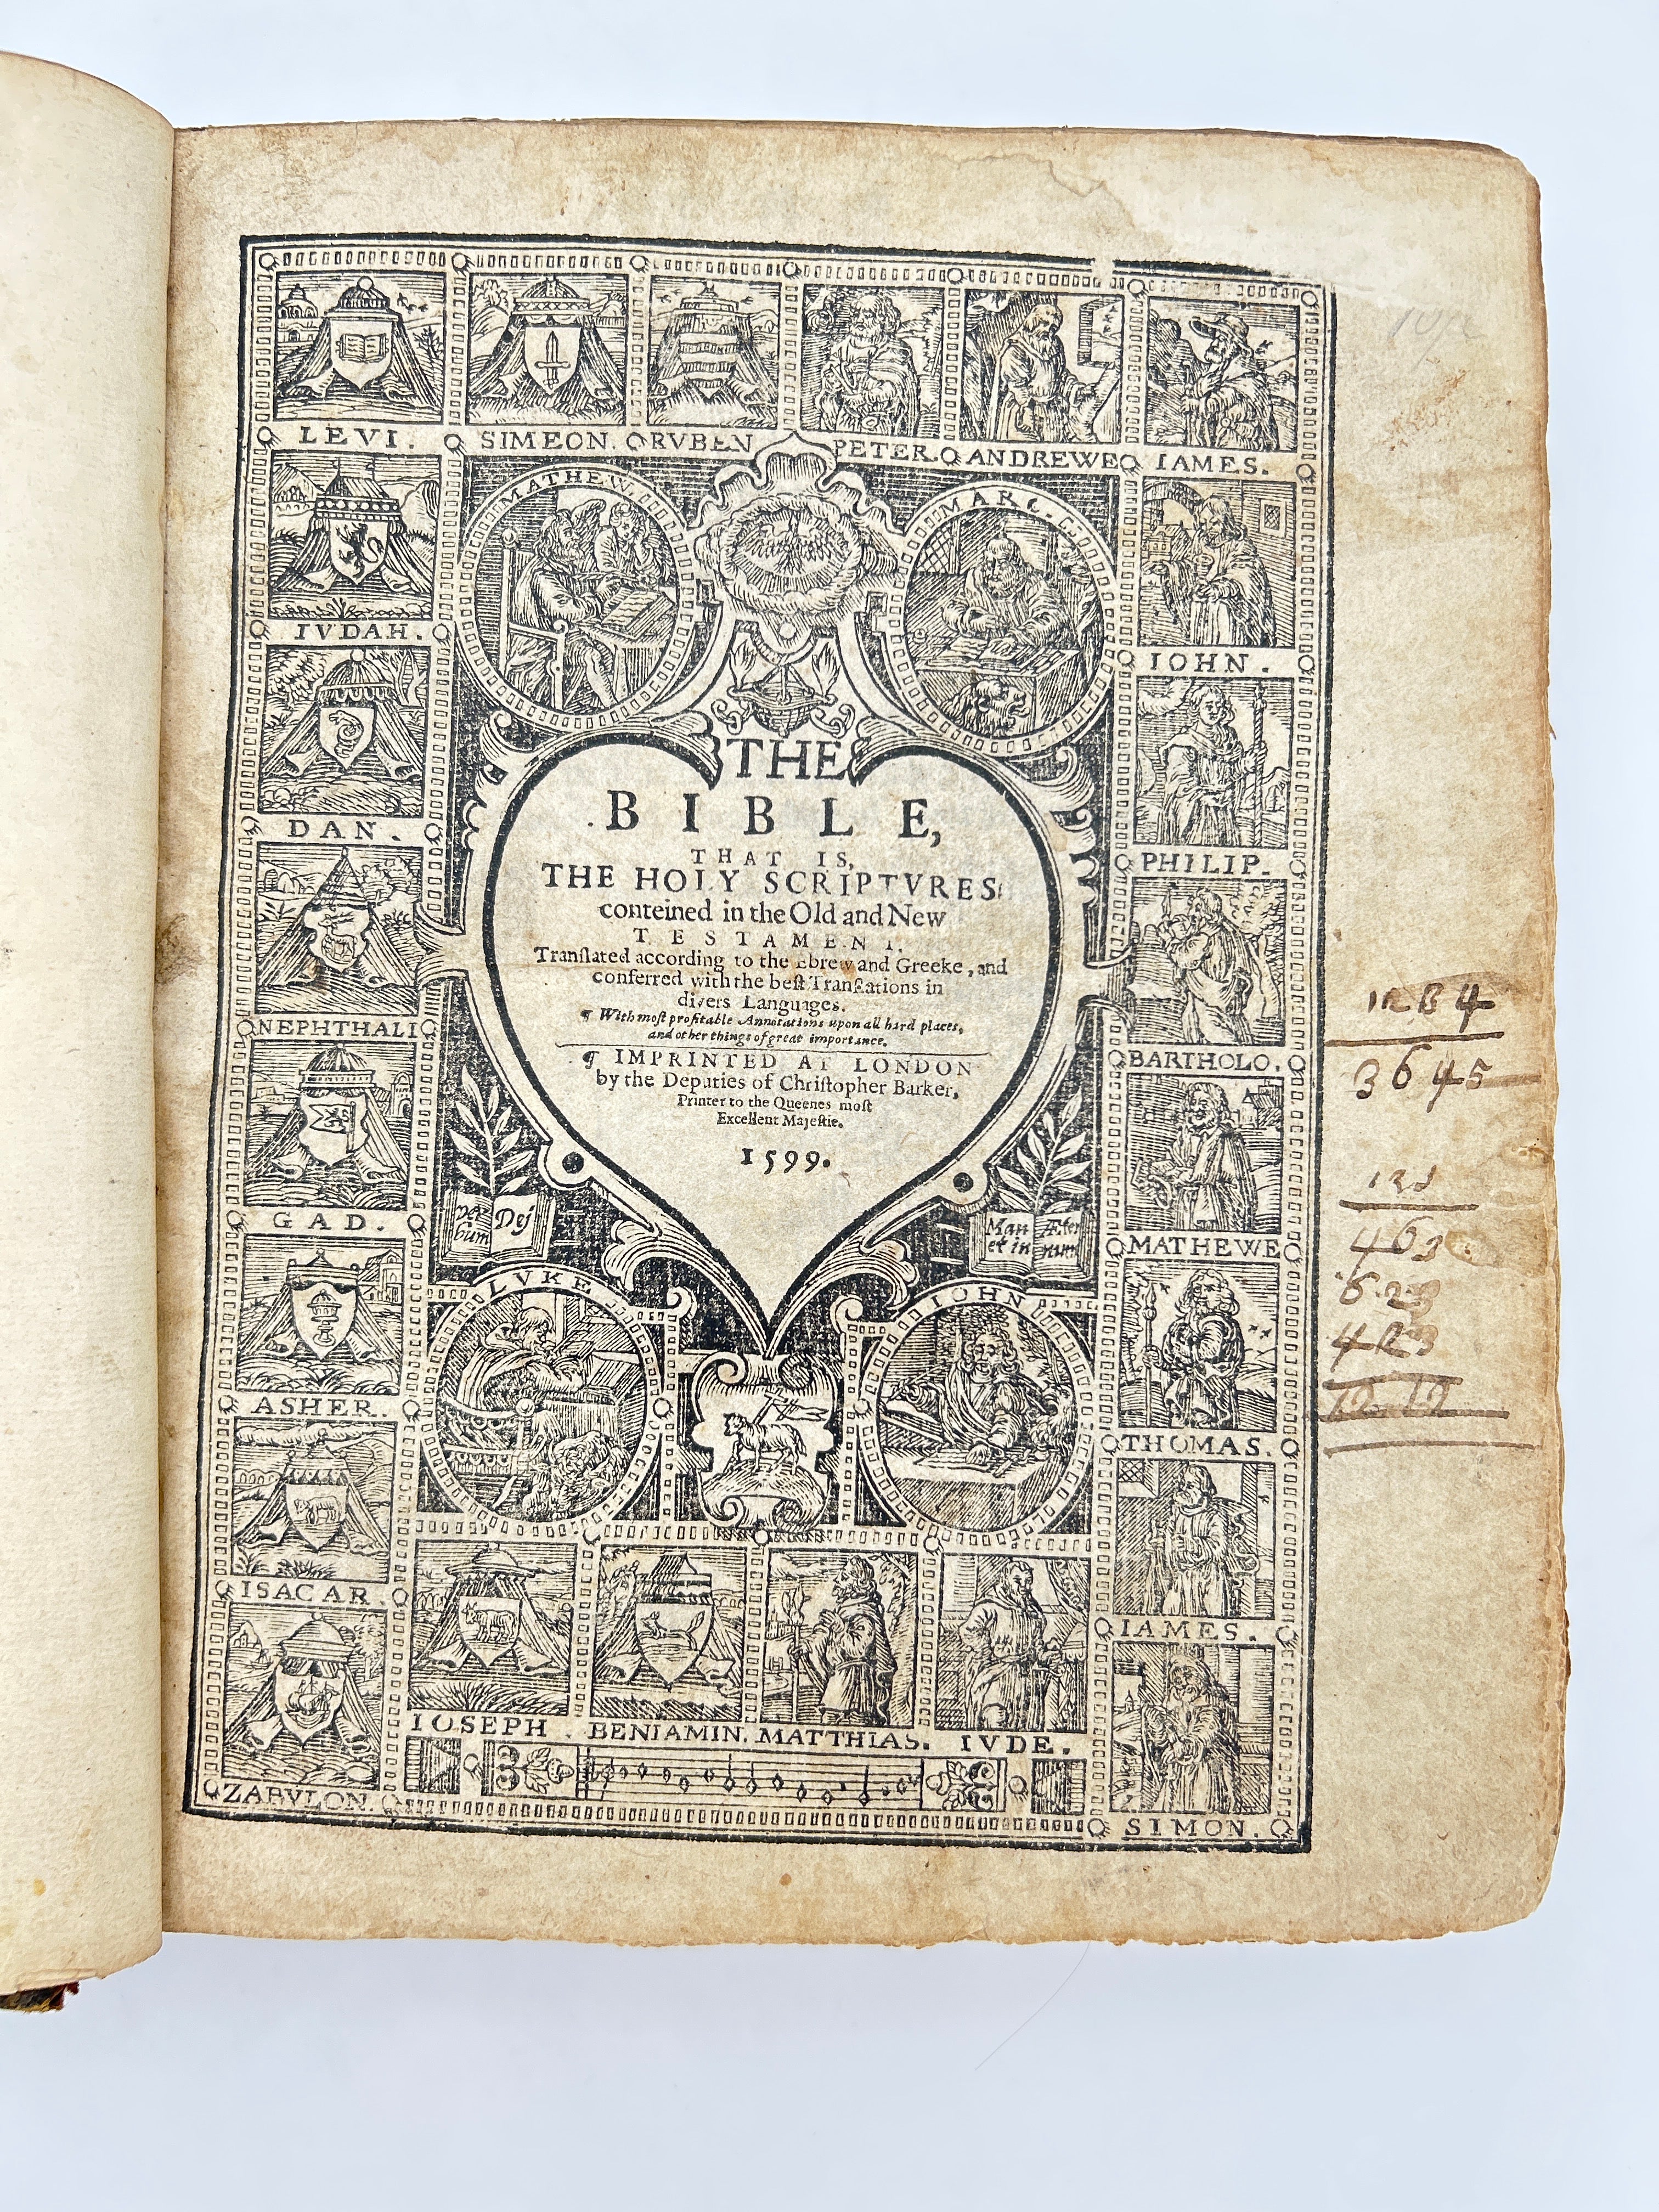 LEVI. SIMEON. RVBEN PETER. ANDREWE IAMES.
MATHEW. MARC.
IVDAH. IOHN.
DAN. PHILIP.
NEPHTHALI BARTHOLO.
GAD. MATHEWE
ASHER. THOMAS.
ISACAR. IAMES.
ZABVLON. SIMON.
THE
BIBLE,
THAT IS,
THE HOLY SCRIPTVRES
conteined in the Old and New
TESTAMENT.
Tranſlated according to the Ebrew and Greeke, and
conferred with the beſt Tranſlations in
divers Languages.
¶ With moſt profitable Annotations upon all hard places,
and other things of great importance.
¶ IMPRINTED AT LONDON
by the Deputies of Chriſtopher Barker,
Printer to the Queenes moſt
Excellent Majeſtie.
1599.
ver Dej
bum
Man Æter
et in num
LVKE IOHN
IOSEPH. BENIAMIN. MATTHIAS. IVDE.
3645